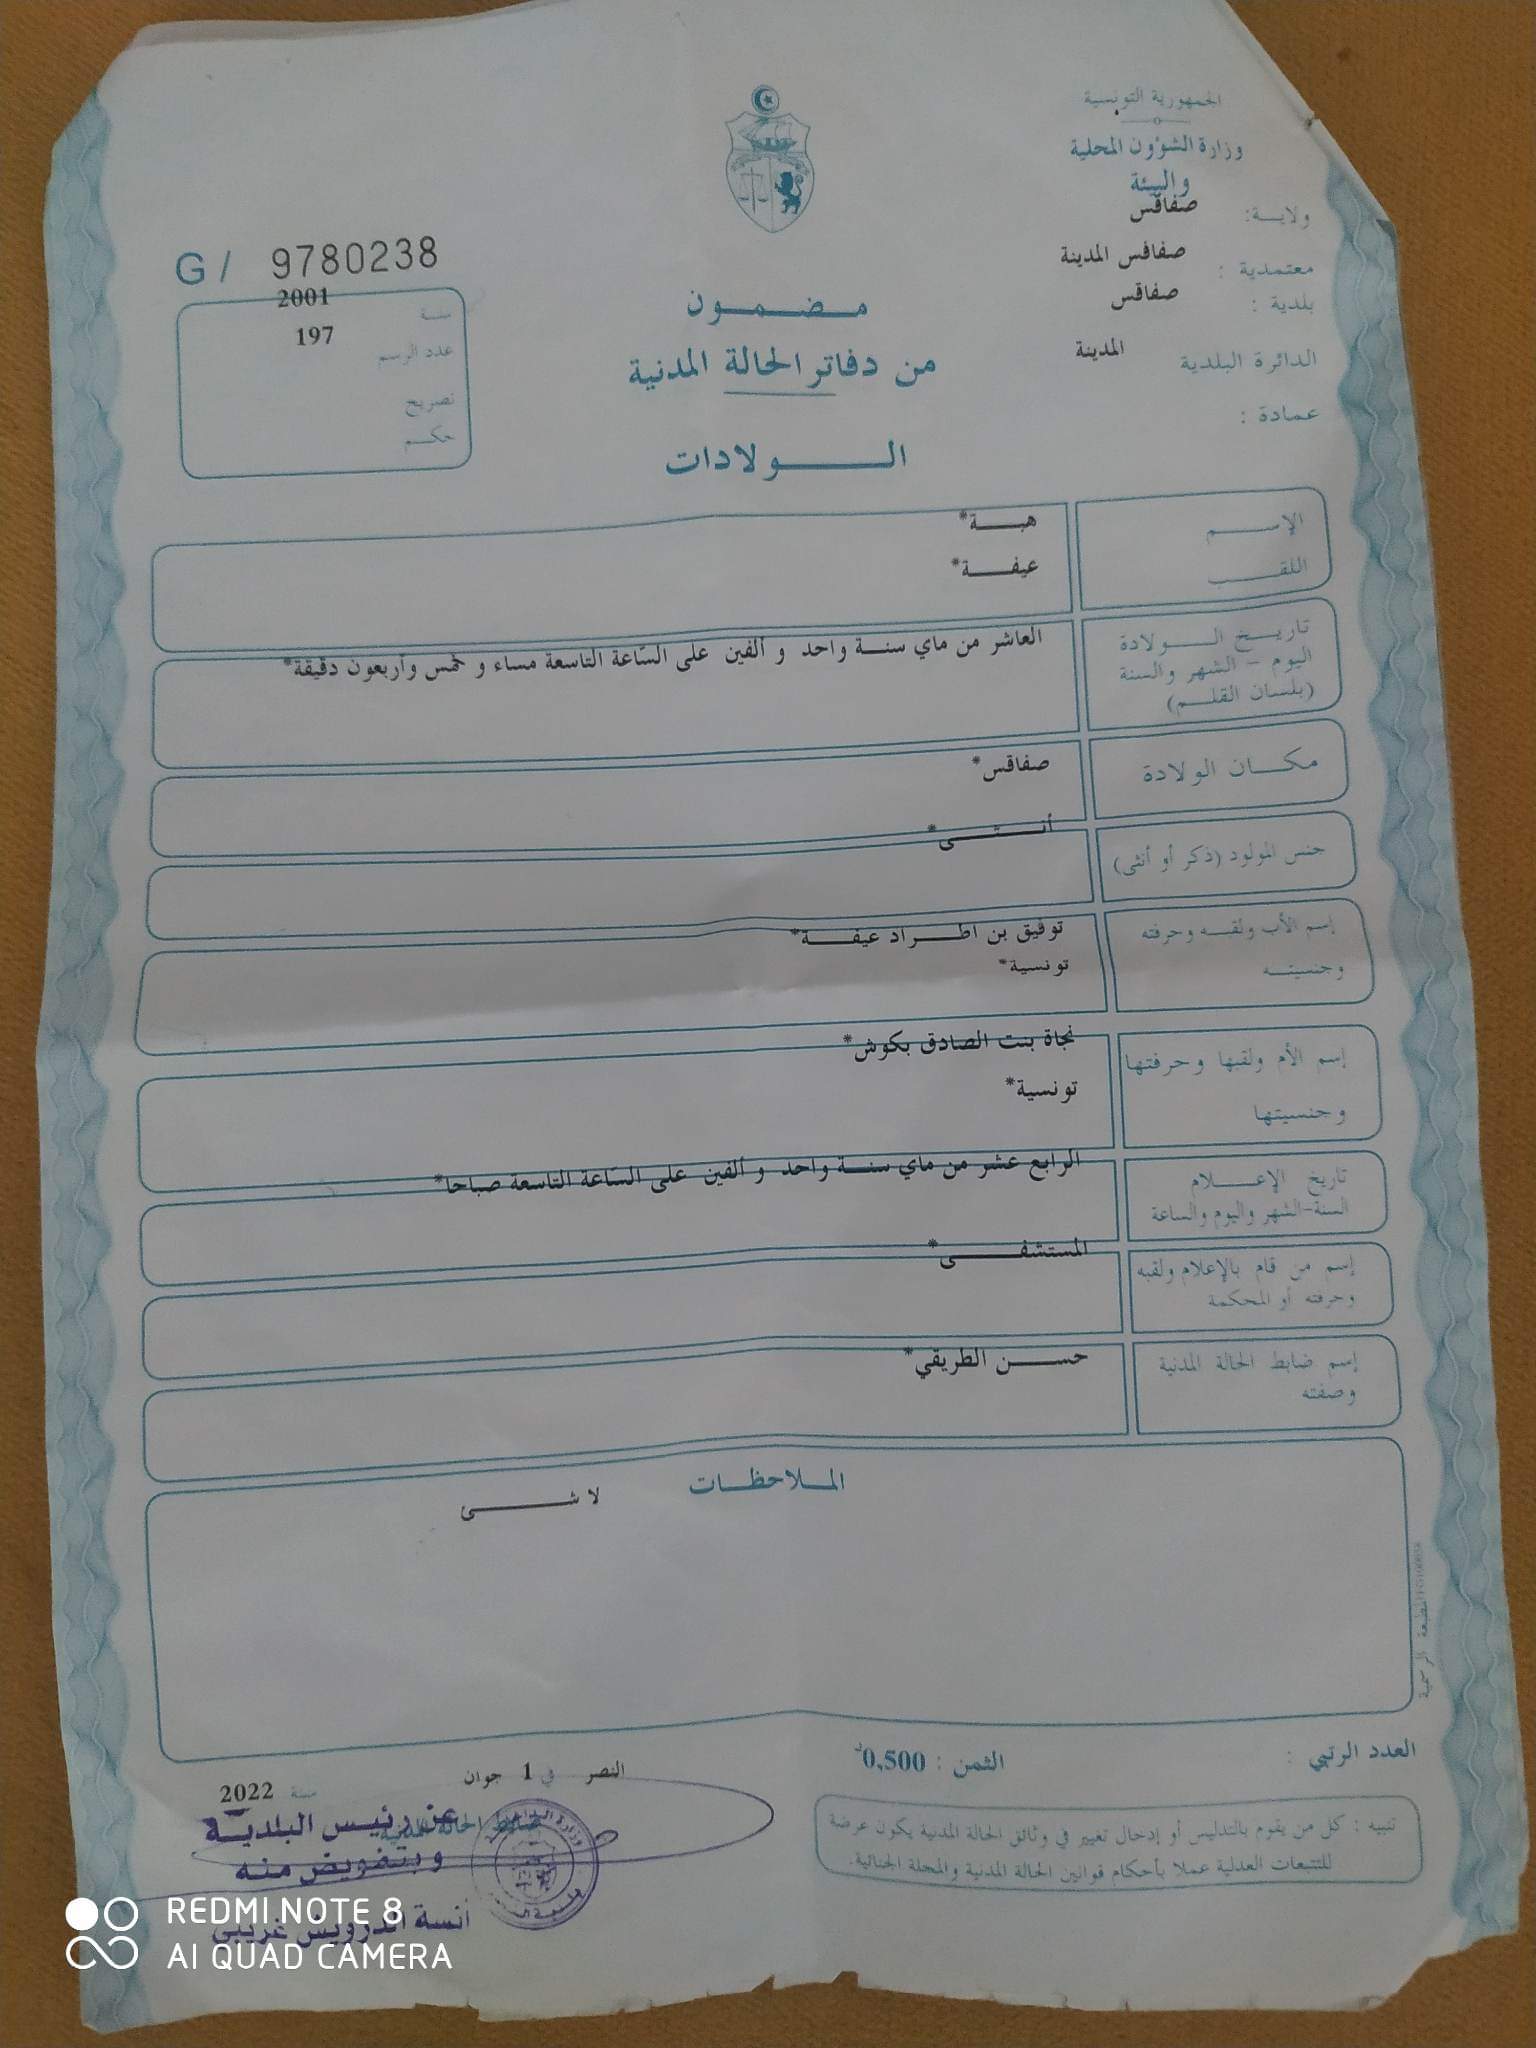 الجمهورية التونسية
وزارة الشؤون المحلية
والبيئة
ولاية: صفاقس
معتمدية : صفاقس المدينة
بلدية : صفاقس
الدائرة البلدية المدينة
عمادة :
G / 9780238
سنة 2001
عدد الرسم 197
تصريح
حكم
مضمون
من دفاتر الحالة المدنية
الولادات
الإسم هبة*
اللقب عيفة*
تاريخ الولادة
اليوم - الشهر والسنة
(بلسان القلم)
العاشر من ماي سنة واحد و ألفين على السّاعة التاسعة مساء و خمس وأربعون دقيقة*
مكان الولادة صفاقس*
جنس المولود (ذكر أو أنثى) أنثى*
إسم الأب ولقبه وحرفته توفيق بن اطراد عيفة*
وجنسيته تونسية*
إسم الأم ولقبها وحرفتها نجاة بنت الصادق بكوش*
وجنسيتها تونسية*
تاريخ الإعلام
السنة-الشهر واليوم والساعة
الرابع عشر من ماي سنة واحد و ألفين على السّاعة التاسعة صباحا*
إسم من قام بالإعلام ولقبه
وحرفته أو المحكمة
المستشفى*
إسم ضابط الحالة المدنية
وصفته
حسن الطريقي*
الملاحظات
لا شى
المطبعة الرسمية
العدد الرتبي :
الثمن : 0,500د
تنبيه : كل من يقوم بالتدليس أو إدخال تغيير في وثائق الحالة المدنية يكون عرضة
للتتبعات العدلية عملا بأحكام قوانين الحالة المدنية والمجلة الجنائية.
النصر في 1 جوان سنة 2022
ضابط الحالة المدنية
عن رئيس البلدية
وبتفويض منه
REDMI NOTE 8
AI QUAD CAMERA